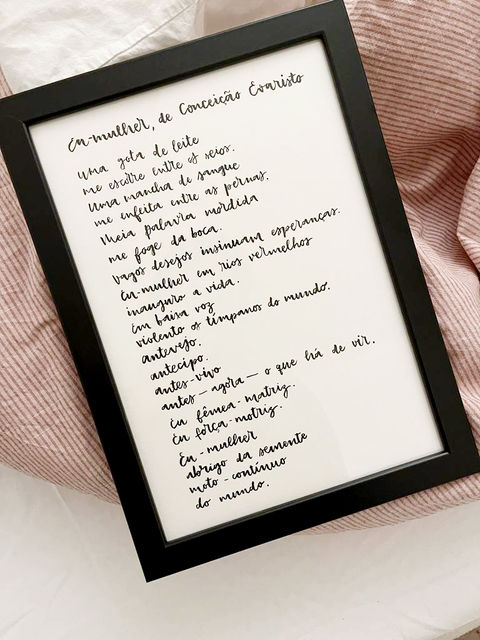 Eu-mulher, de Conceição Evaristo
Uma gota de leite
me escorre entre os seios.
Uma mancha de sangue
me enfeita entre as pernas.
Meia palavra mordida
me foge da boca.
Vagos desejos insinuam esperanças.
Eu-mulher em rios vermelhos
inauguro a vida.
Em baixa voz
violento os tímpanos do mundo.
Antevejo.
Antecipo.
Antes-vivo
Antes — agora — o que há de vir.
Eu fêmea-matriz.
Eu força-motriz.
Eu-mulher
abrigo da semente
moto-contínuo
do mundo.